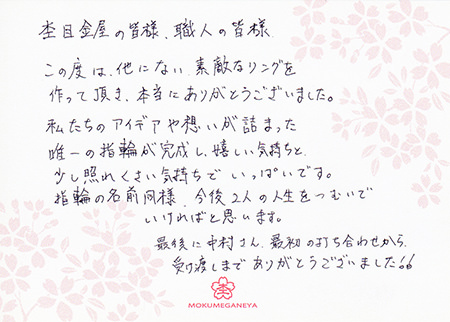 杢目金屋の皆様、職人の皆様
この度は、他にない素敵なリングを
作って頂き、本当にありがとうございました。
私たちのアイデアや想いが詰まった
唯一の指輪が完成し、嬉しい気持ちと
少し照れくさい気持ちでいっぱいです。
指輪の名前同様、今後2人の人生をつむいで
いければと思います。
最後に中村さん、最初の打ち合わせから
受け渡しまでありがとうございました!!
MOKUMEGANEYA